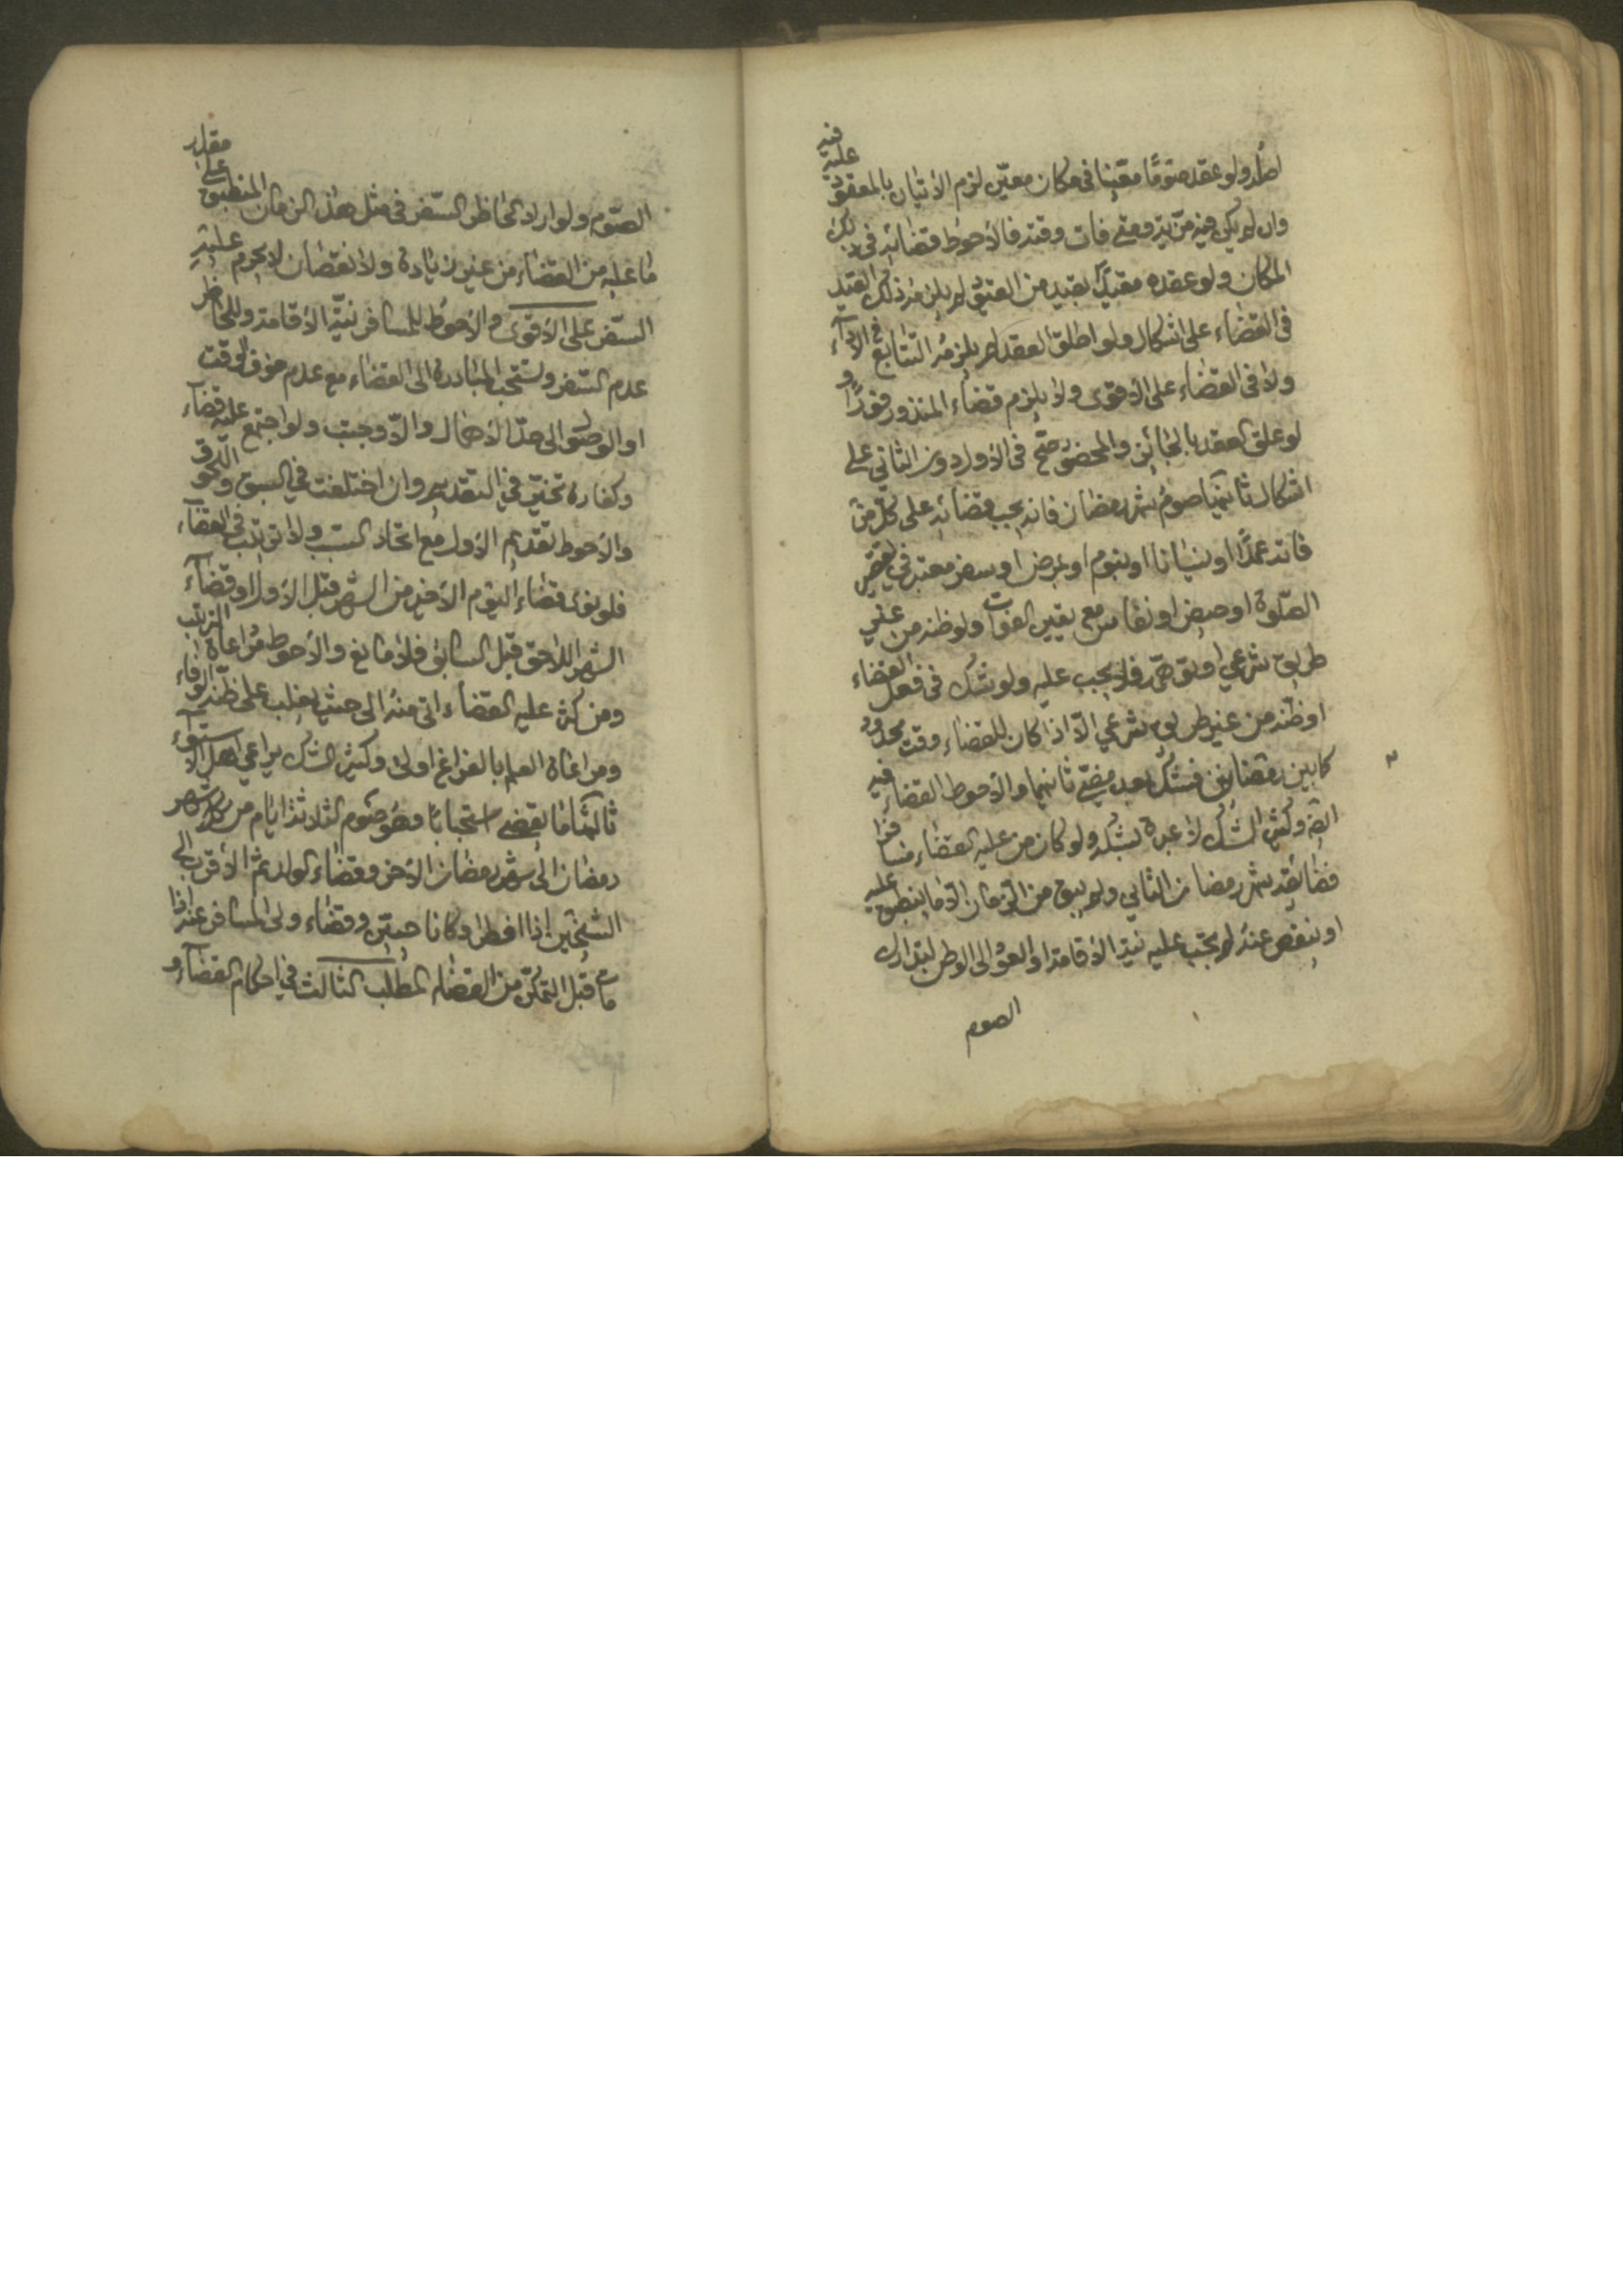 اصله ولو عقد صومًا معينا في مكان معيّن لزم الاتيان بالمعقود عليه فيه
وان لم يكن فيه مزيّة ومتى فات وقته فالأحوط قضائه في ذلك
المكان ولو عقده مقيدًا بقيد من القيود لم يلزمه ذلك القيد
في القضاء على اشكال ولو اطلق العقد لم يلزمه التتابع في الاداء
ولا في القضاء على الاقوى ولا يلزم قضاء المنذور فورًا و
لو علق العقد بالجائز والمحضور صح في الاول دون الثاني على
اشكال ثانيها صوم شهر رمضان فانه يجب قضائه على كلّ من
فاته عمدًا او نسيانا او بنوم او بمرض او سفر معتبر في تقصير
الصّلوة او حيض او نفاس مع يقين الفوات ولو ظنه من غير
طريق شرعي او توهّمه فلا يجب عليه ولو شك في فعل القضاء
او ظنه من غير طريق شرعي الّا اذا كان للقضاء وقت محدود
كما بين رمضانين فشك بعد مضيّ ثانيهما والأحوط القضاء فيه
ايضا وكثير الشك لا عبرة بشكه ولو كان من عليه القضاء مسافرا
فضايقه شهر رمضان الثاني ولم يبق من الزمان الّا ما ينطبق عليه
او ينقص عنه لم يجب عليه نية الاقامة او العود الى الوطن لتدارك
الصوم
الصّوم ولو اراد الحاظر السّفر في مثل هذا الزمان المنطبق على مقدار
ما عليه من القضاء من غير زيادة ولا نقصان لم يحرم عليه
السّفر على الأقوى والأحوط للمسافر نيّة الاقامة وللحاظر
عدم السّفر وتستحب المبادرة الى القضاء مع عدم خوف الوقت
او الوصول الى حدّ الاهمال والّا وجبت ولو اجتمع عليه قضاء
وكفارة تخيّر في التقديم وان اختلفت في السبق واللحوق
والأحوط تقديم الأول مع اتحاد السبب ولا ترتيب في القضاء
فلو نوى قضاء اليوم الأخير من الشهر قبل الأول او قضاء
الشهر اللاحق قبل السابق فلا مانع والأحوط مراعاة الترتيب
ومن كثر عليه القضاء اتى منه الى حيث يغلب على ظنّه الوفاء
ومراعاة العلم بالفراغ اولى وكثير الشك يراعي اهل الاستواء
ثالثها ما يقضى استحبابًا وهو صوم الثلاثة ايام من كل شهر
رمضان الى شهر رمضان الأخر وقضاء الولد ثم الأقرب الى
الشيخين اذا افطرا وكانا حيّين وقضاء ولى المسافر عنه اذا
مات قبل التمكّن من القضاء المطلب الثالث في احكام القضاء و